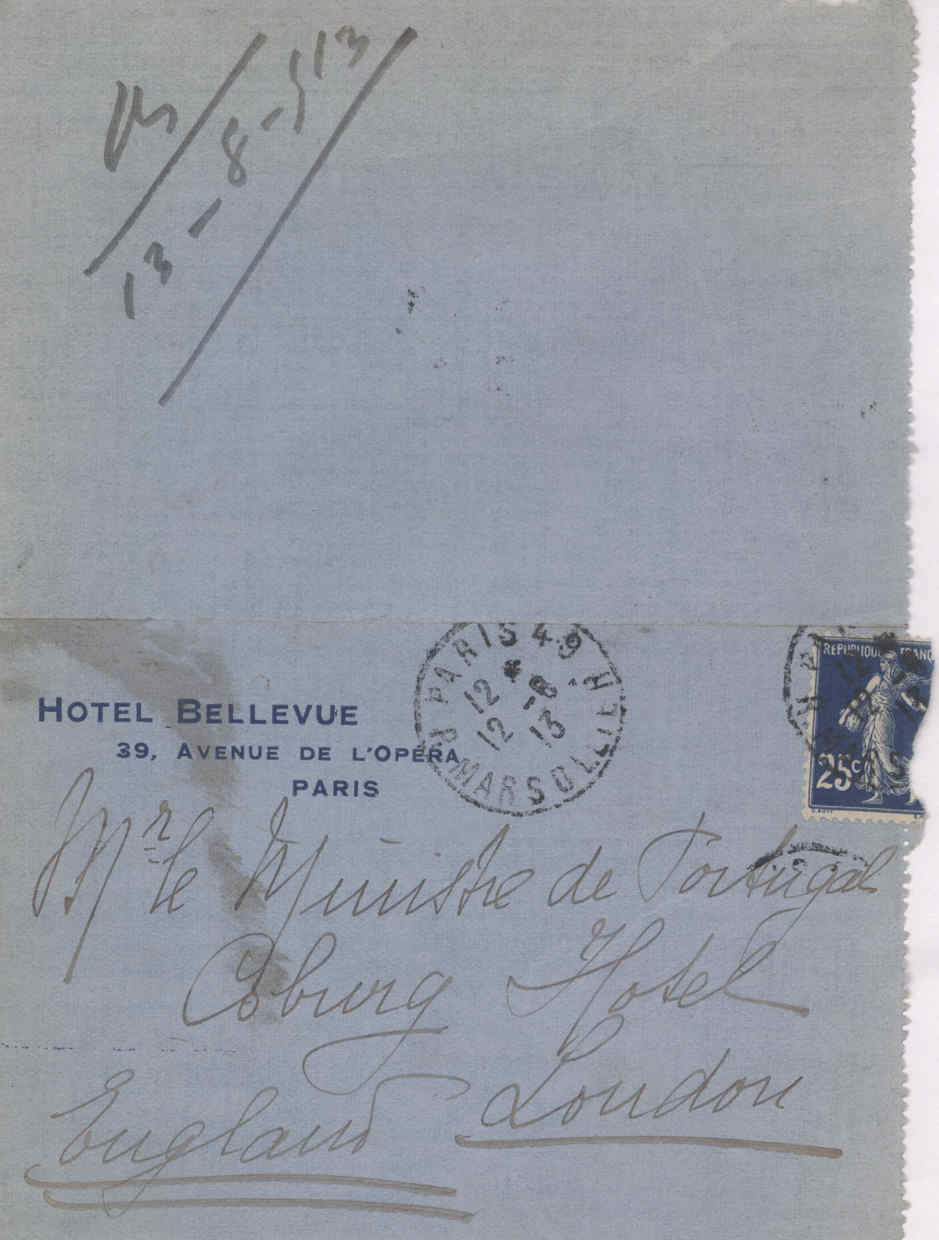 13-8-913
HOTEL BELLEVUE
39, AVENUE DE L'OPÉRA
PARIS
PARIS 49
12 * 12 -8 13
R. MARSOLLIER
REPUBLIQUE FRANC
25c
Mr le Ministre de Portugal
Coburg Hotel
London
England